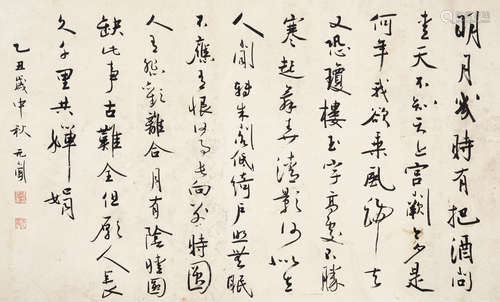 明月幾時有把酒問
青天不知天上宮闕今夕是
何年我欲乘風歸去
又恐瓊樓玉宇高處不勝
寒起舞弄清影何似在
人間轉朱閣低綺戶照無眠
不應有恨何事長向別時圓
人有悲歡離合月有陰晴圓
缺此事古難全但願人長
久千里共嬋娟
乙丑歲中秋